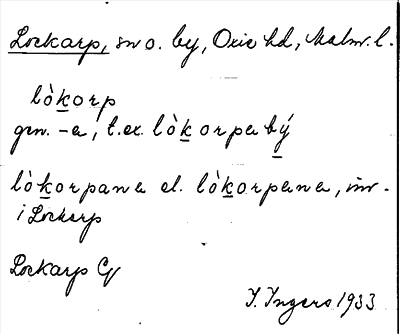 Lockarp, sn o. by, Oxie hd, Malm. l.
lòkorp
gen. -a, t.ex. lòkorpa bý
lòkorpana el. lòkorpena, inv.
i Lockarp
Lockarp
I. Ingers 1933